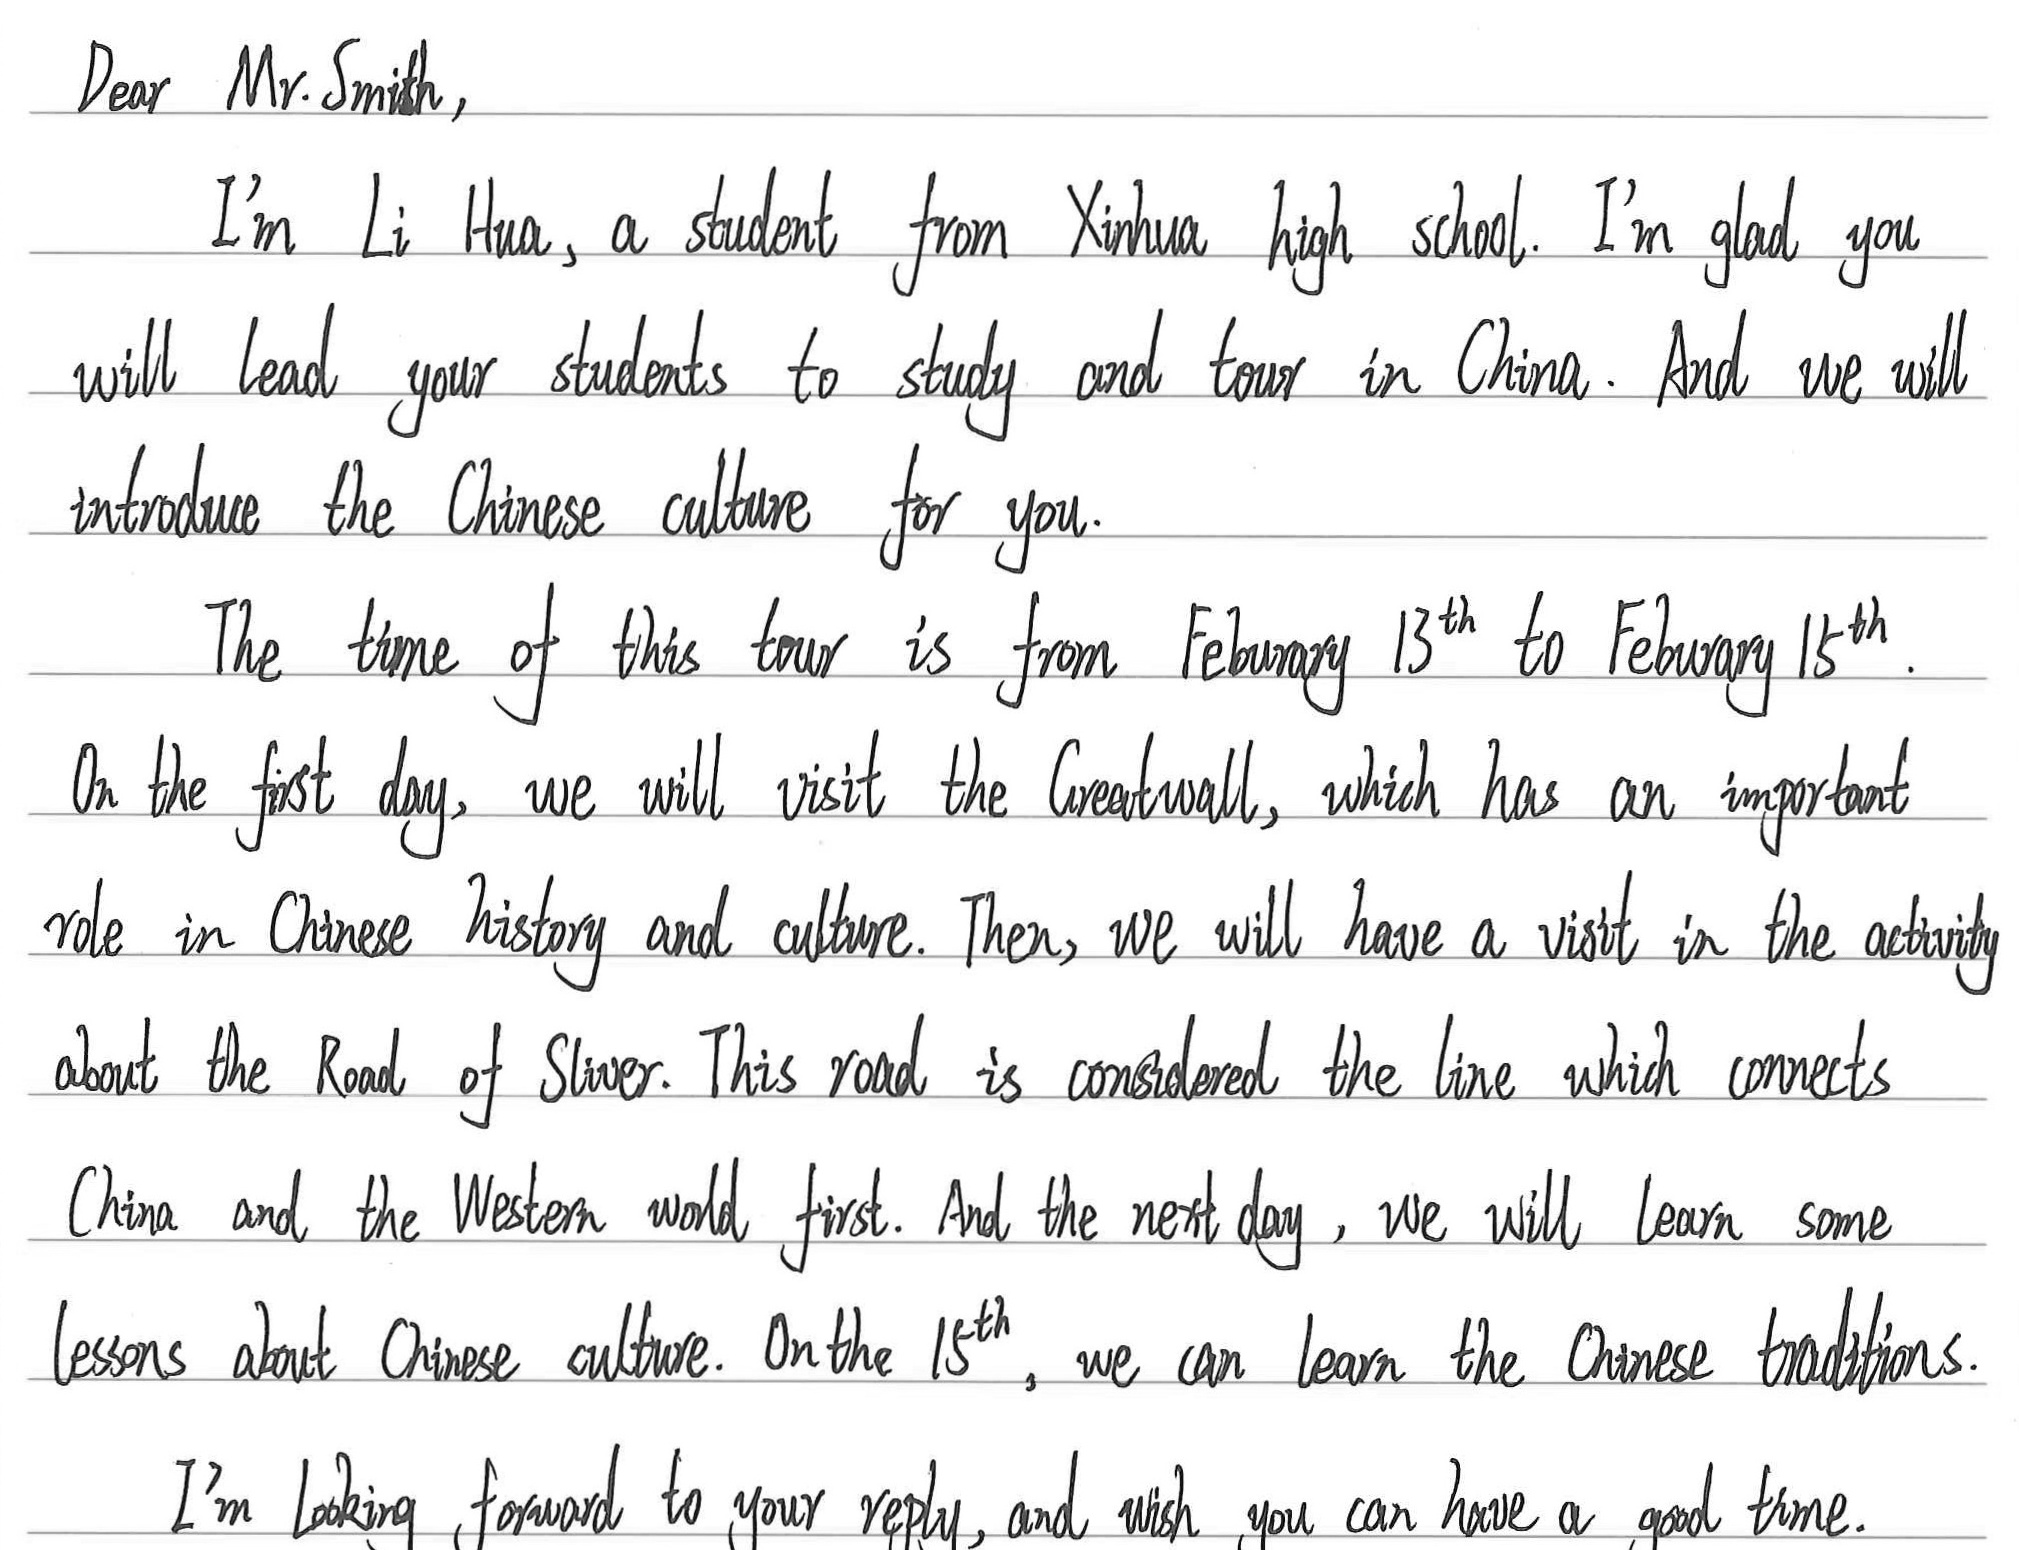 Dear Mr. Smith,
I'm Li Hua, a student from Xinhua high school. I'm glad you
will lead your students to study and tour in China. And we will
introduce the Chinese culture for you.
The time of this tour is from Feburary 13th to Feburary 15th.
On the first day, we will visit the Greatwall, which has an important
role in Chinese history and culture. Then, we will have a visit in the activity
about the Road of Sliver. This road is considered the line which connects
China and the Western world first. And the next day, we will learn some
lessons about Chinese culture. On the 15th, we can learn the Chinese traditions.
I'm looking forward to your reply, and wish you can have a good time.